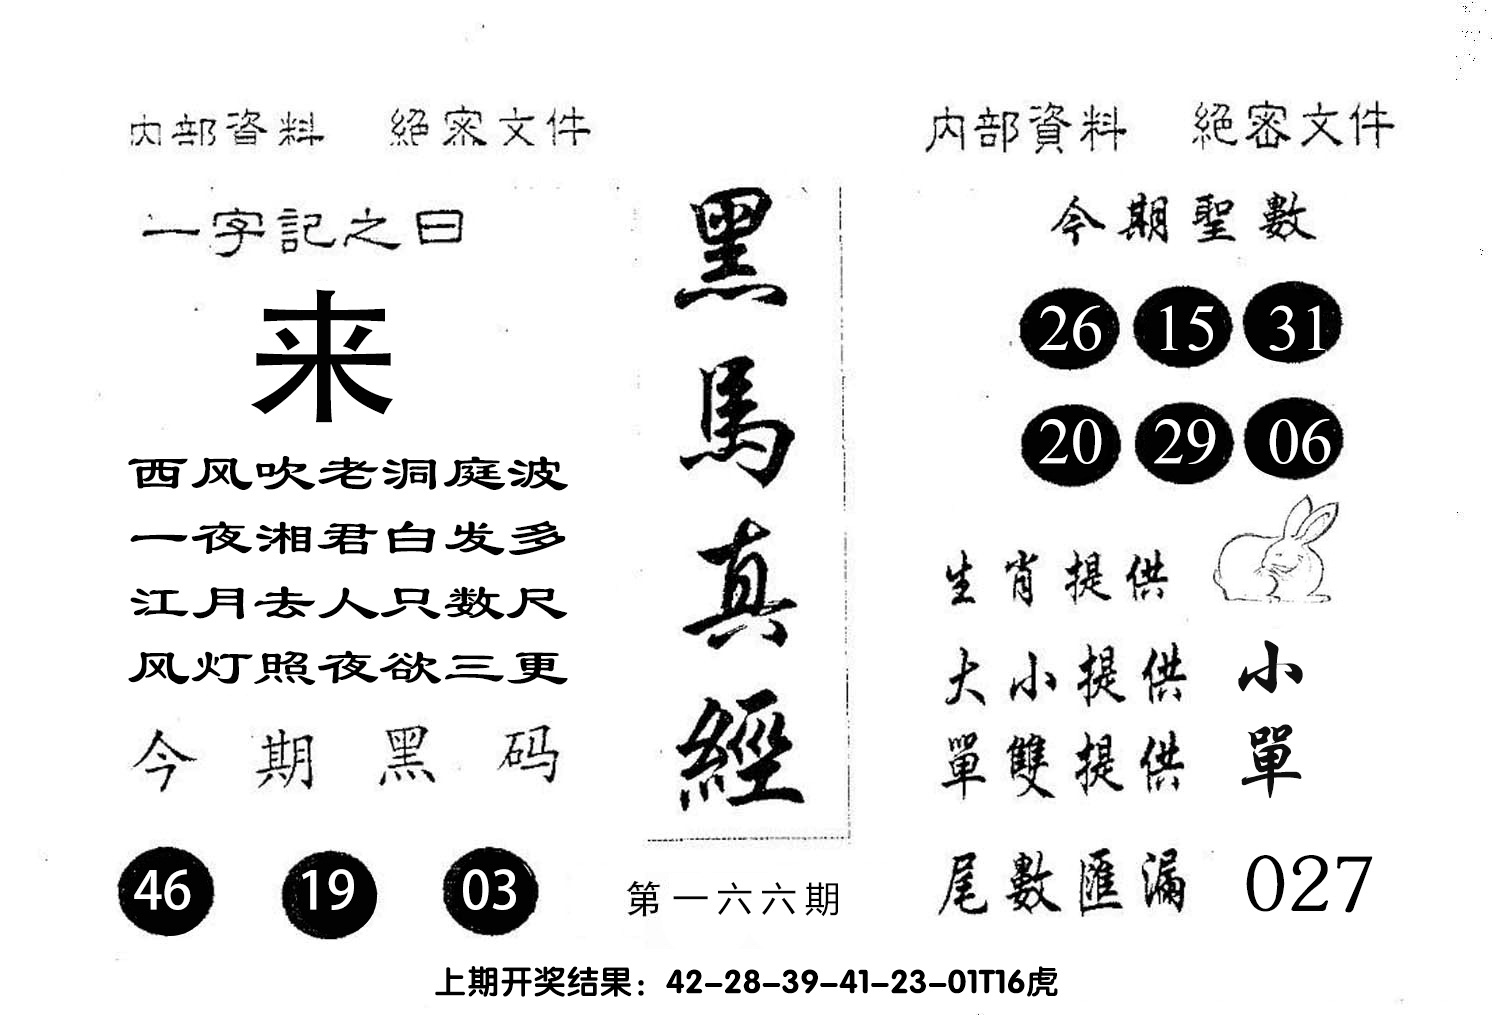 内部資料 絕密文件
一字記之曰
来
西风吹老洞庭波
一夜湘君白发多
江月去人只数尺
风灯照夜欲三更
今期黑码
46 19 03
黑馬真經
第一六六期
内部資料 絕密文件
今期聖數
26 15 31
20 29 06
生肖提供
大小提供 小
單雙提供 單
尾數匯漏 027
上期开奖结果：42-28-39-41-23-01T16虎